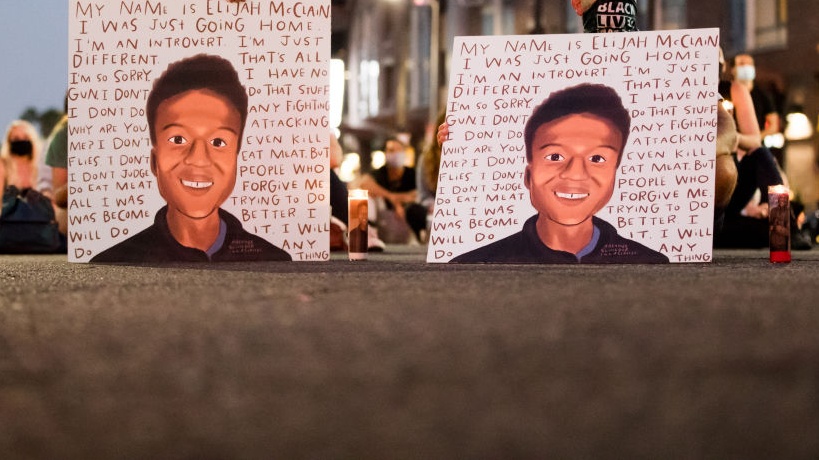 MY NAME IS ELIJAH McCLAIN
I WAS JUST GOING HOME.
I'M AN INTROVERT. I'M JUST
DIFFERENT. THAT'S ALL.
I'M SO SORRY. I HAVE NO
GUN. I DON'T DO THAT STUFF
I DON'T DO ANY FIGHTING
WHY ARE YOU ATTACKING
ME? I DON'T EVEN KILL
FLIES. I DON'T EAT MEAT. BUT
I DON'T JUDGE PEOPLE WHO
DO EAT MEAT FORGIVE ME.
ALL I WAS TRYING TO DO
WAS BECOME BETTER I
WILL DO IT. I WILL
DO ANY
THING
BLACK
LIVES
MY NAME IS ELIJAH McCLAIN
I WAS JUST GOING HOME.
I'M AN INTROVERT. I'M JUST
DIFFERENT. THAT'S ALL
I'M SO SORRY. I HAVE NO
GUN. I DON'T DO THAT STUFF
I DON'T DO ANY FIGHTING
WHY ARE YOU ATTACKING
ME? I DON'T EVEN KILL
FLIES. I DON'T EAT MEAT. BUT
I DON'T JUDGE PEOPLE WHO
DO EAT MEAT FORGIVE ME.
ALL I WAS TRYING TO DO
WAS BECOME BETTER I
WILL DO IT. I WILL
DO ANY
THING